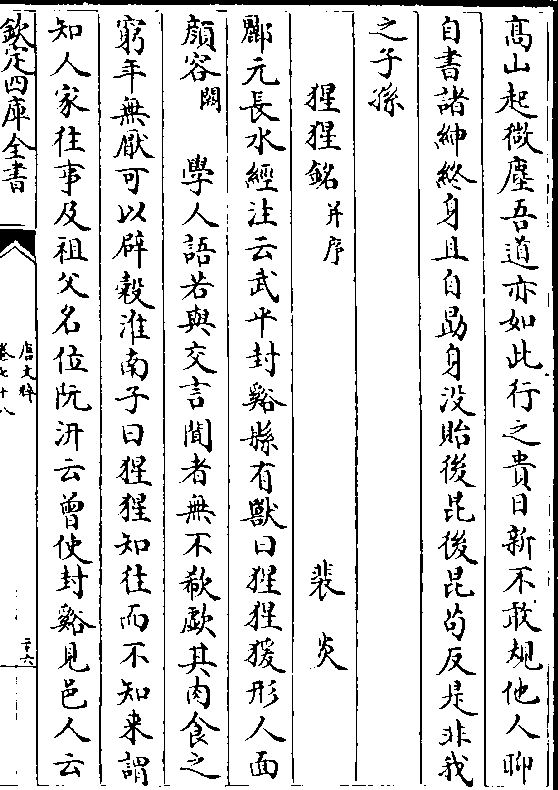 高山起微塵吾道亦如此行之貴日新不敢規他人聊
自書諸紳終身且自勗身没貽後昆後昆苟反是非我
之子孫
猩猩銘并序 裴炎
酈元長水經注云武平封谿縣有獸曰猩猩猨形人面
顔容闕 學人語若與交言聞者無不欷歔其肉食之
窮年無厭可以辟穀淮南子曰猩猩知往而不知来謂
知人家往事及祖父名位阮汧云曾使封谿見邑人云
欽定四庫全書
唐文粹
卷七十八
二十六